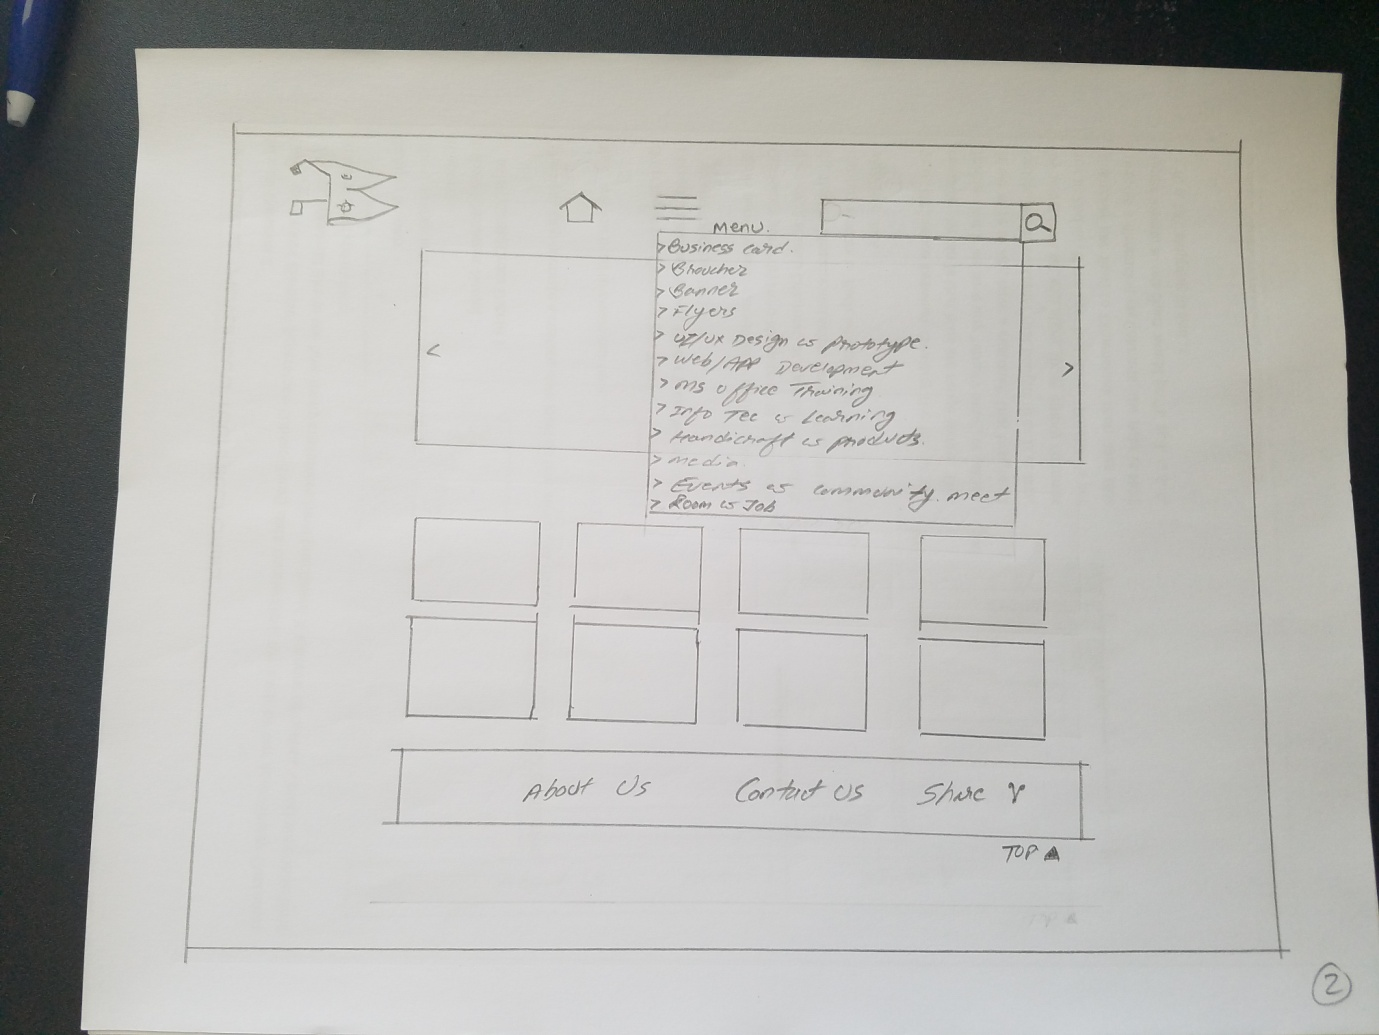 Menu.
> Business Card.
> Broucher
> Banner
> Flyers
> UI/UX Design & Prototype.
> Web/APP Development
> MS Office Training
> Info Tec & Learning
> Handicraft & products.
> media.
> Events & community meet
> Room & Job
<
>
About Us Contact Us Share
TOP ▲
2